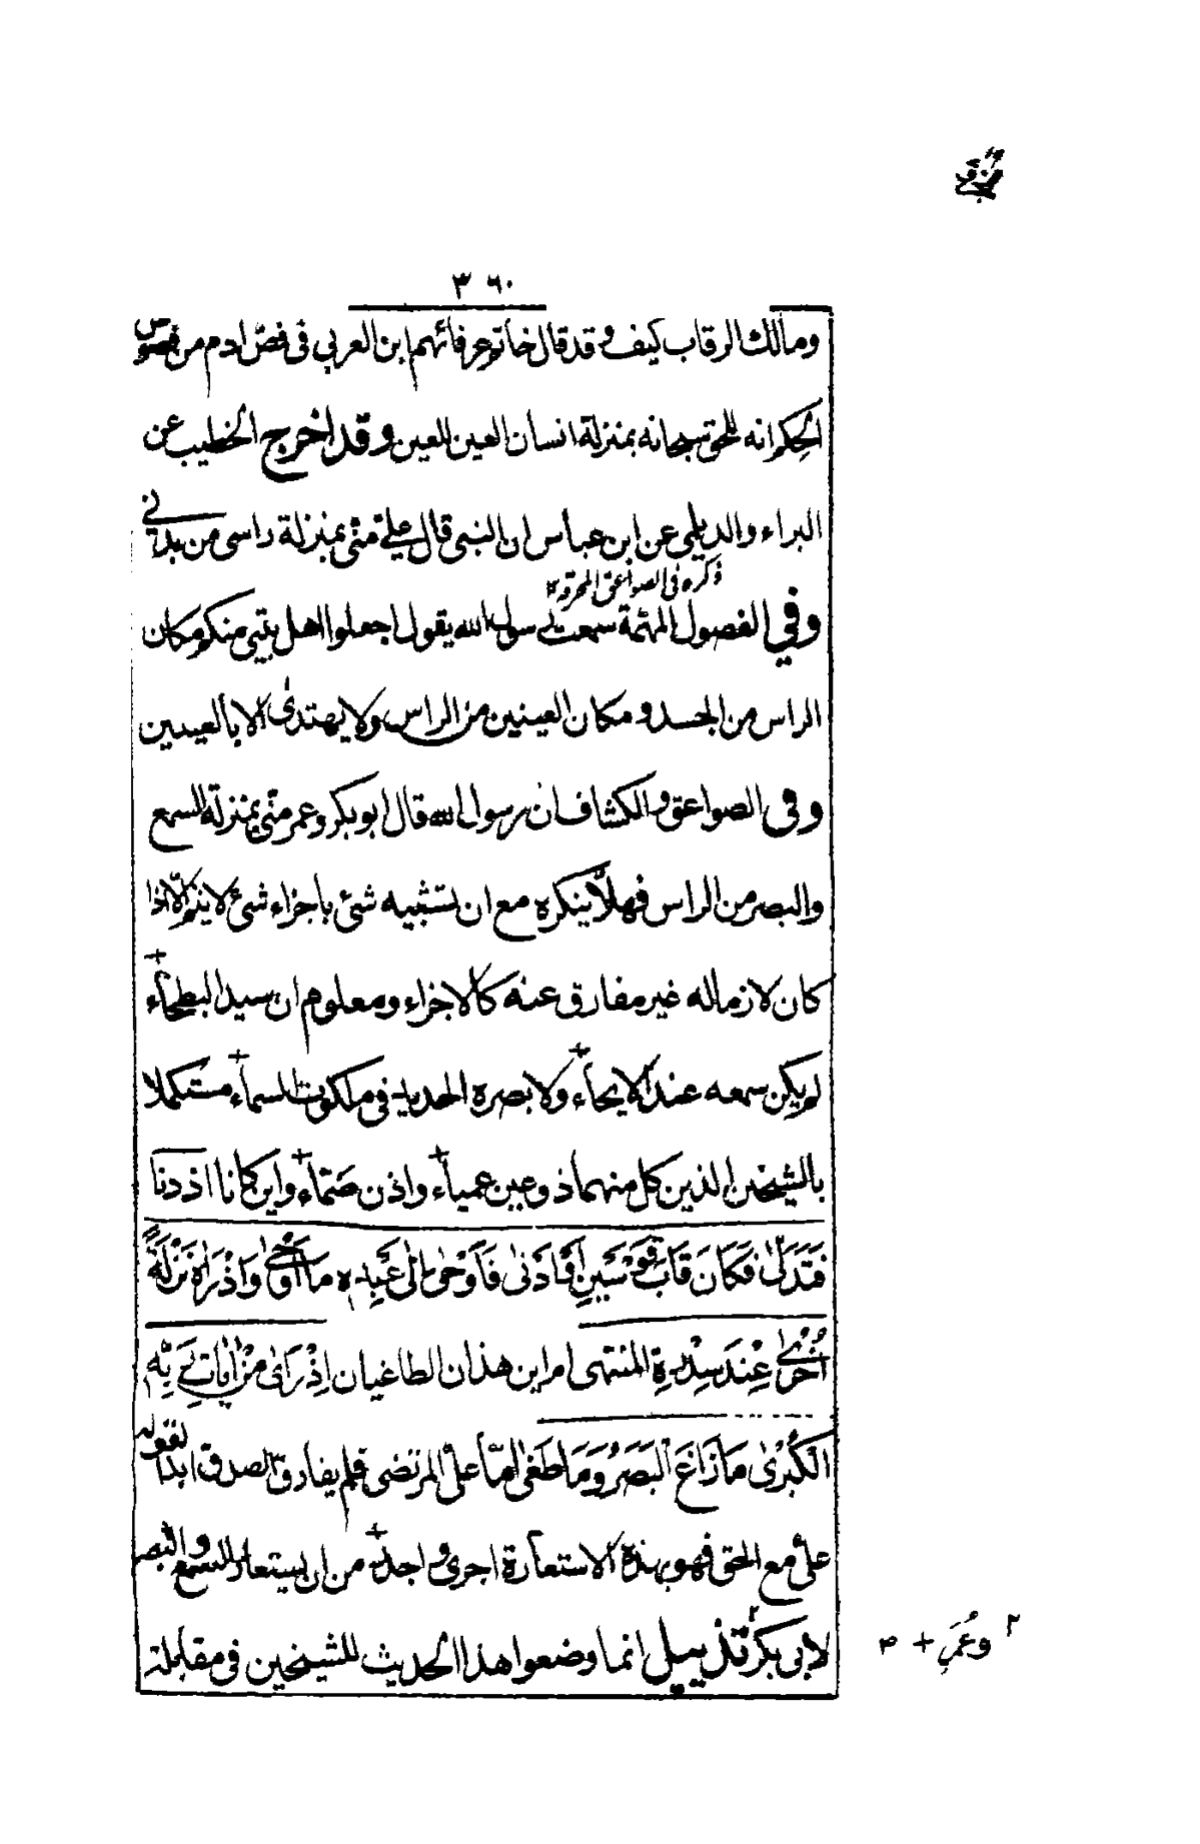 ۳۶۰
ومالك الرقاب كيف وقد قال خاتم عرفائهم ابن العربي في فصّ ادم من فصوص
الحِكم انه للحق سبحانه بمنزلة انسان العين للعين وقد اخرج الخطيب عن
البراء والديلمي عن ابن عباس ان النبي قال علي مني بمنزلة راسى من بدني
ذكره في الصواعق المحرقة ١٢
وفي الفصول المهمّة سمعت رسول الله يقول اجعلوا اهل بيتي منكم مكان
الراس من الجسد و مكان العينين من الراس ولا يهتدى الا بالعينين
وفى الصواعق والكشاف ان رسول الله قال ابو بكر وعمر منّي بمنزلة السمع
والبصر من الراس فهلّا ينكره مع ان تشبيه شئ باجزاء شئ لا يتم الّا اذا
كان لازما له غير مفارق عنه كالاجزاء ومعلوم ان سيد البطحاء
لم يكن سمعه عند الايحاء ولا بصره الحديد في ملكوت السماء مستكملا
بالشيخين الذين كل منهما ذو عين عمياء واذن صمّاء واين كانا اذ دنا
فَتَدَلّىٰ فَكَانَ قَابَ قَوْسَيْنِ اَوْ اَدْنىٰ فَاَوْحىٰ اِلىٰ عَبْدِهِ مَا اَوْحىٰ وَلَقَدْ رَاهُ نَزْلَةً
اُخْرىٰ عِنْدَ سِدْرَةِ المنتهى ام اين هذان الطاغيان اِذْ رَاىٰ مِنْ اٰيَاتِ رَبِّهِ
الْكُبْرىٰ مَا زَاغَ الْبَصَرُ وَمَا طَغىٰ امّا علىّ المرتضى فلم يفارق الصدق ابدا لقوله
علىّ مع الحق فهو بهذه الاستعارة اجرى واجدر من ان يستعار السمع والبصر
لابى بكر ٢ تذييل انما وضعوا هذا الحديث للشيخين في مقابلة
٢ وعُمَر +